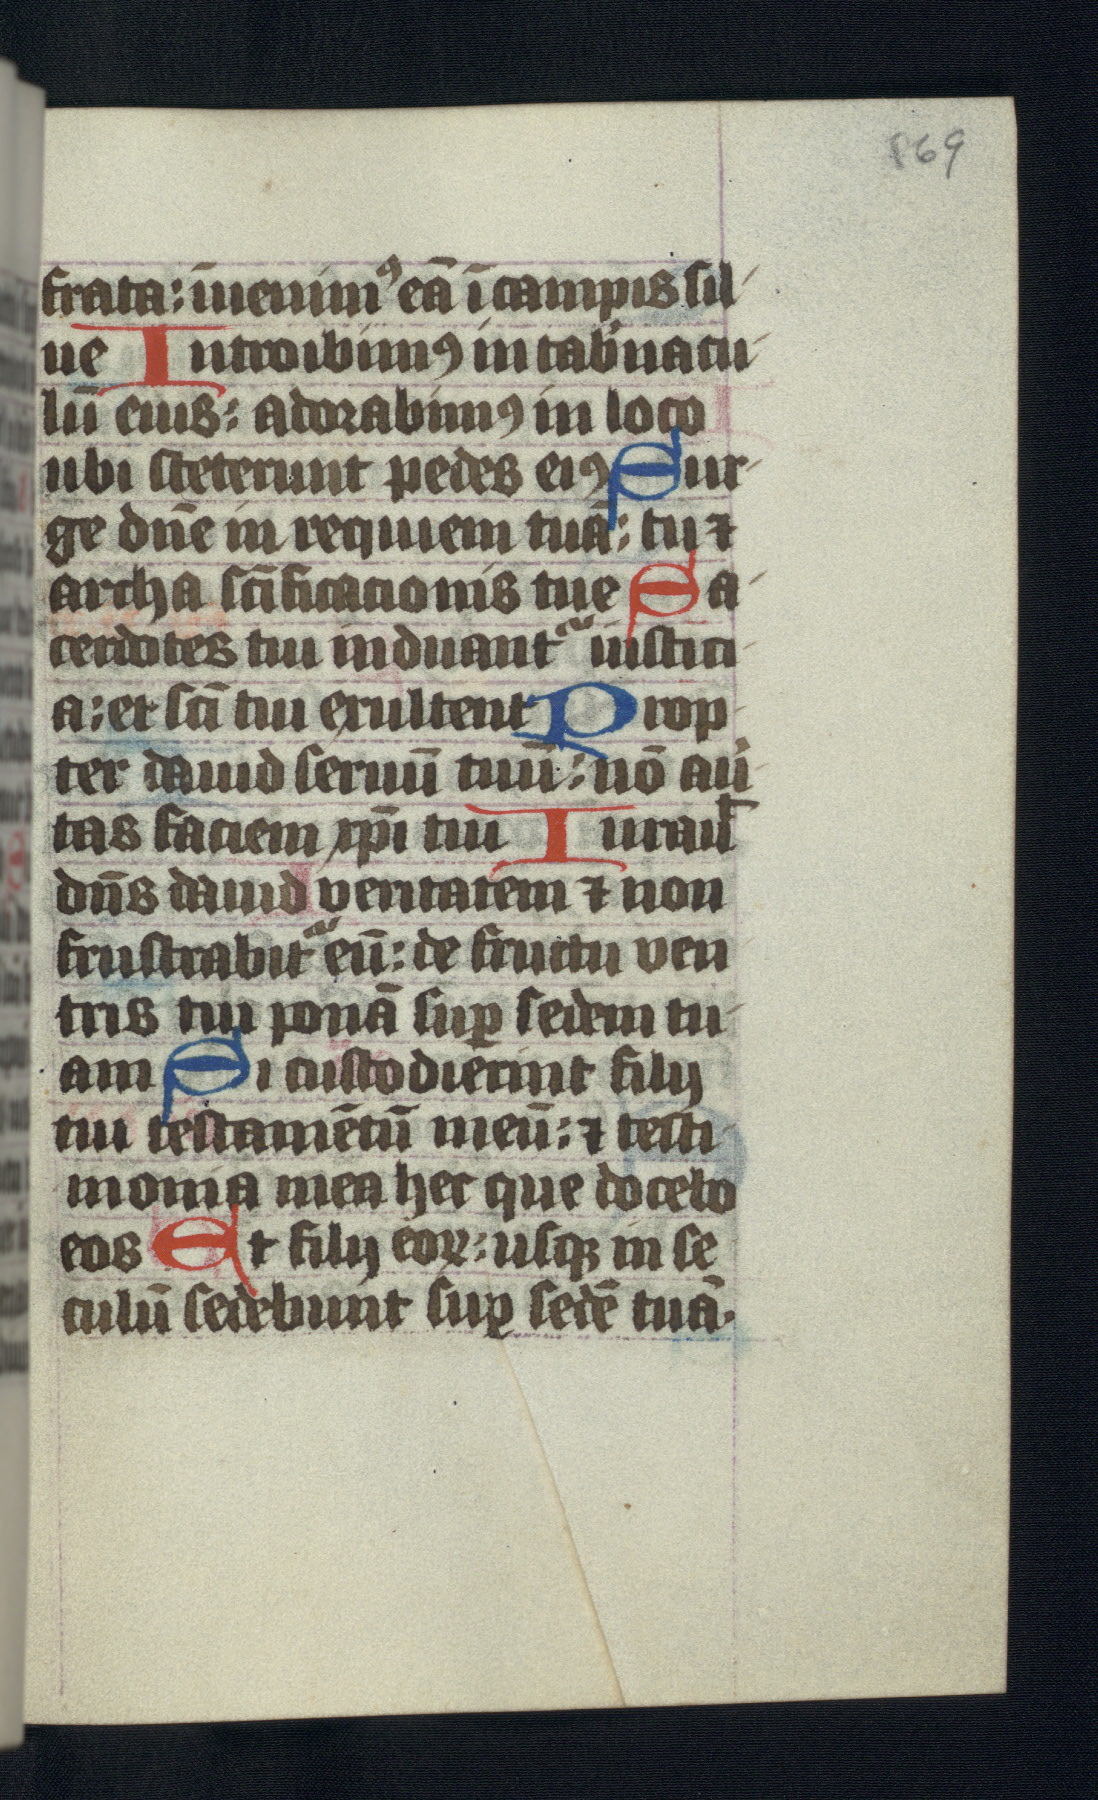 169
frata: īuenim⁹ eā ī campis sil
ue Introibim⁹ in tab̉nacu
lū eius: adorabim⁹ in loco
ubi steterunt pedes ei⁹ Sur
ge dn̄e in requiem tuā: tu ⁊
archa sc̄ificacionis tue Sa
cerdotes tui induantᷣ iustici
a: et sc̄i tui exultent Prop
ter dauid seruū tuū: nō au̓
tas faciem xp̄i tui Iurauͭ
dn̄s dauid veritatem ⁊ non
frustrabitᷣ eū: de fructu ven
tris tui ponā suꝑ sedem tu
am Si custodierint filij
tui testamētū meū: ⁊ testi
monia mea hec que docebo
eos Et filij eoꝝ: usqꝫ in se
culū sedebunt suꝑ sedē tuā.